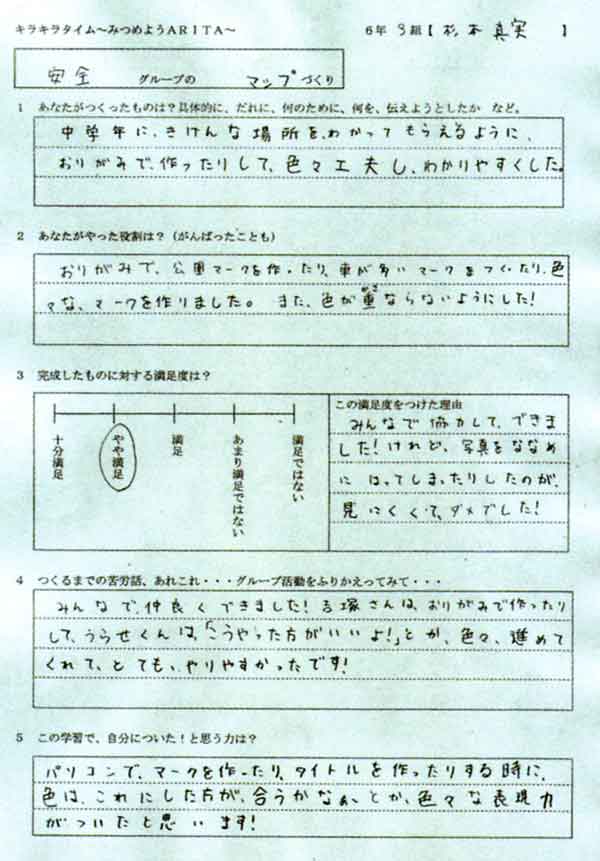 キラキラタイム～みつめようARITA～ 6年 3組【 杉本 真実 】
安全 グループの マップづくり
1 あなたがつくったものは？具体的に、だれに、何のために、何を、伝えようとしたか など。
中学年に、きけんな場所を、わかってもらえるように、
おりがみで、作ったりして、色々工夫し、わかりやすくした。
2 あなたがやった役割は？（がんばったことも）
おりがみで、公園マークを作ったり、車が多いマークをつくったり、色
々な、マークを作りました。また、色が重ならないようにした！
3 完成したものに対する満足度は？
十分満足
やや満足
満足
あまり満足ではない
満足ではない
この満足度をつけた理由
みんなで協力して、できま
した！けれど、写真をななめ
にはってしまったりしたのが、
見にくくて、ダメでした！
4 つくるまでの苦労話、あれこれ・・・グループ活動をふりかえってみて・・・
みんなで、仲良くできました！吉塚さんは、おりがみで作ったり
して、うらせくんは、「こうやった方がいいよ！」とか、色々、進めて
くれて、とても、やりやすかったです！
5 この学習で、自分についた！と思う力は？
パソコンで、マークを作ったり、タイトルを作ったりする時に、
色は、これにした方が、合うかなぁ、とか、色々な表現力
がついたと思います！